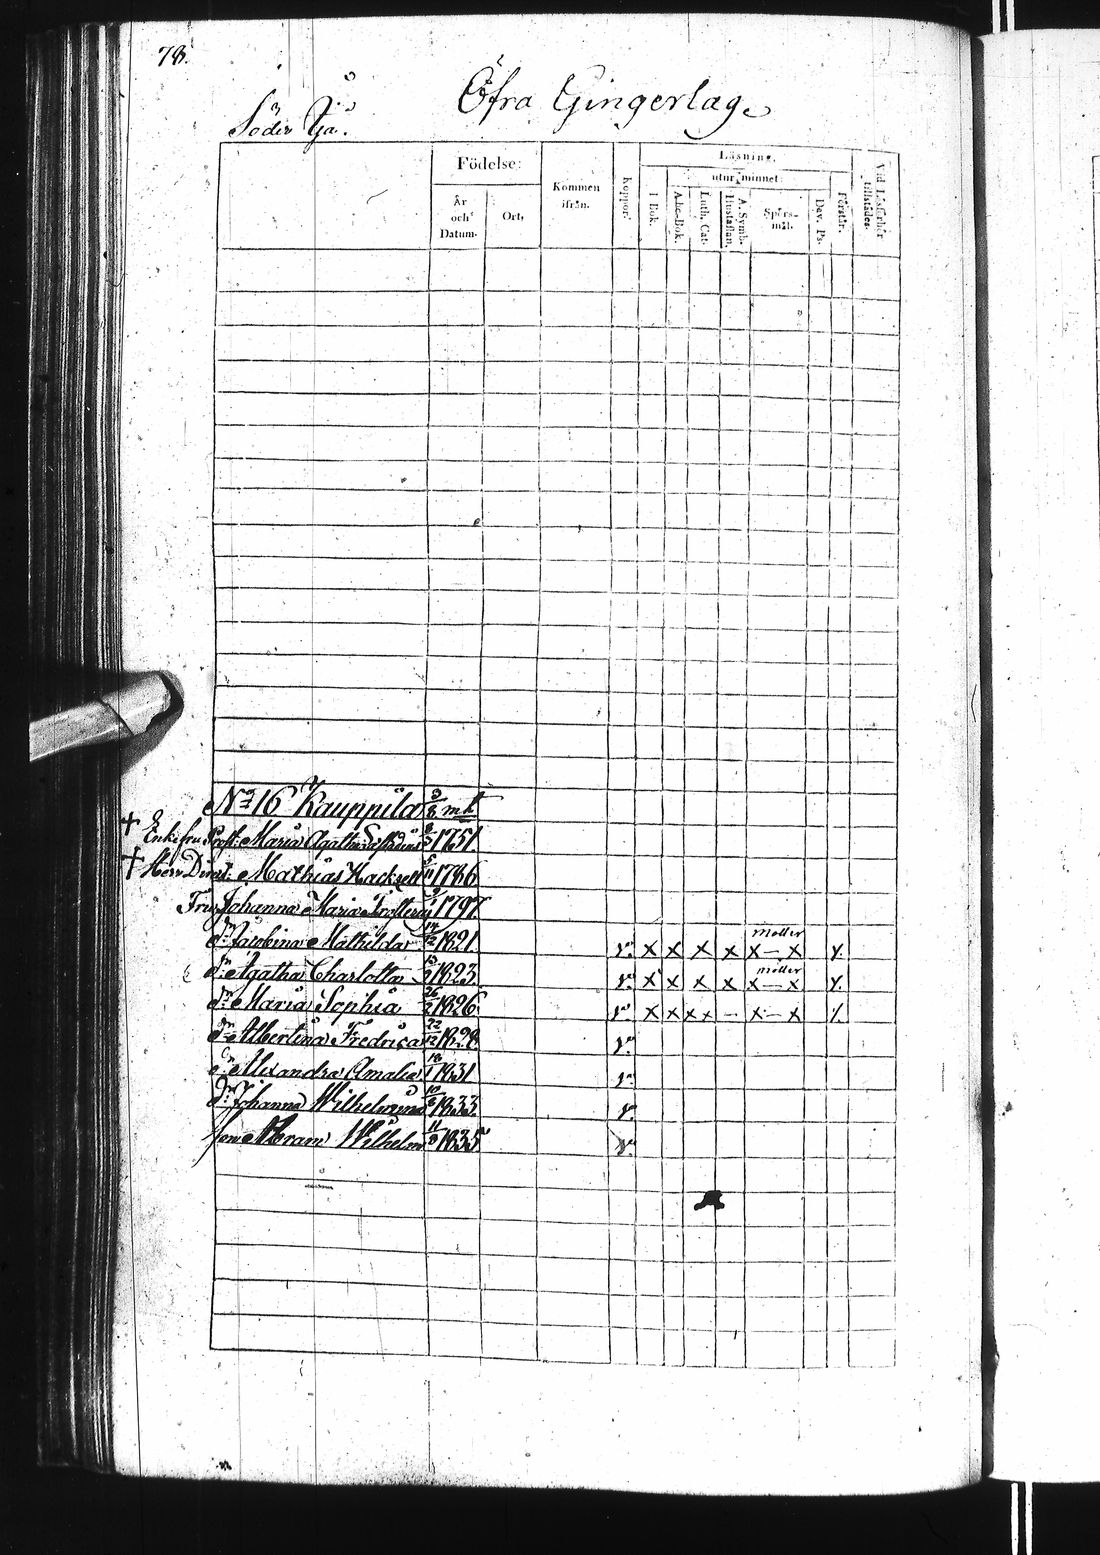 78.
Öfra Gingerlag
Söder Yå.
Födelse:
År och Datum.
Ort,
Kommen ifrån.
Koppor.
Läsning,
utur minnet
I Bok.
A.b.c.-Bok.
Luth. Cat.
A. Symb. Hustaflan.
Spörs-mål.
Dav. Ps.
Förstår.
Vid Läsförhör tillstädes.
No 16 Kauppila 3/8 mtl
+ Enkefru Prost. Maria Agatha 1751
+ Herr Mathias Hacksell 1786
Fru Johanna Maria 1797
Dr Jacobina Mathilda 1821 v. x x x x möller x – x v.
Dr Agatha Charlotta 1823 v. x x x x möller x – x v.
Dr Maria Sophia 26/2 1826 v. x x x x – x – x v.
Dr Albertina Fredrica 22/12 1828 v.
Dr Alexandra Amalia 18/1 1831 v.
Dr Johanna Wilhelmina 10/6 1833 v.
Son Abram Wilhelm 11/9 1835 v.